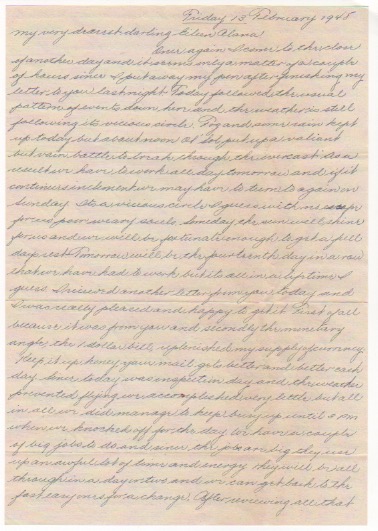 Friday 13 February 1945
My very dearest darling Eileen Alana:
Once again I come to the close
of another day and it seems only a matter of a couple
of hours since I put away my pen after finishing my
letter to you last night. Today followed the usual
pattern of events down here and the weather is still
following its vicious circle. Fog and some rain kept
up today but about noon Ol' Sol put up a valiant
but vain battle to break through the overcast. As a
result we have to work all day tomorrow and if it
continues inclement we may have to turn to again on
Sunday. It's a vicious circle I guess with no
for us poor weary souls. Someday the sun will shine
for us and we will be fortunate enough to get a full
day rest. Tomorrow will be the fourteenth day in a row
that we have had to work but it's all in a
guess. I received another letter from you today and
I was really pleased and happy to get it. First of all
because it was from you and secondly the monetary
angle, the 1 dollar bill, replenished my supply of currency.
Keep it up honey your mail gets better and better each
day. Since today was inspection day and the weather
prevented flying we accomplished very little but all
in all we did manage to keep busy up until 4 PM
when we knocked off for the day. We have a couple
of big jobs to do and since the jobs are big they use
up an awful lot of time and energy. They will be well
through in a day or two and we can get back to the
fast easy ones for a change. After reviewing all that